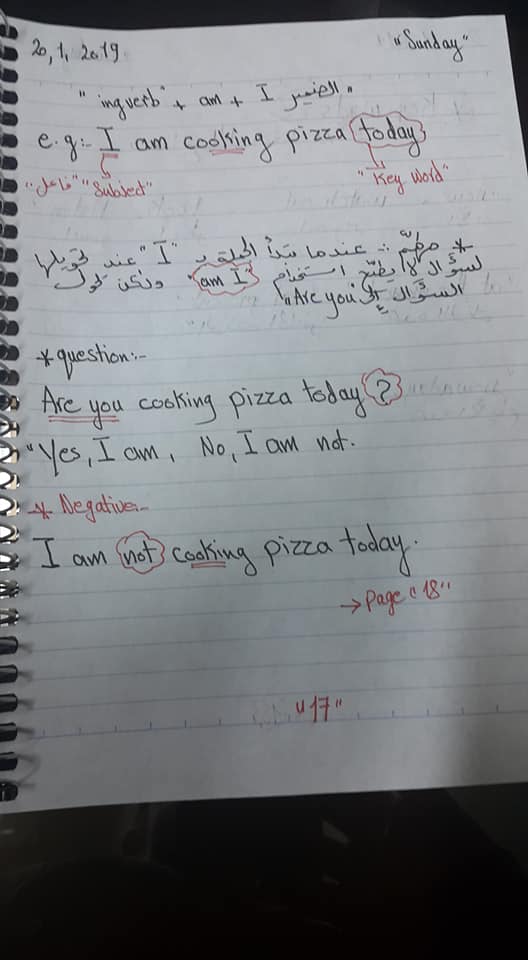 20, 1, 2019. "Sunday"
" ingverb" + am + I الضمير "
e.g:- I am cooking pizza today
"فاعل" "Subject" "Key word"
* مهمّ :- عندما تبدأ الجملة بـ "I" عند تحويلها
لسؤال لا يصحّ استخدام "am I" ولكن نحول
السؤال إلى "Are you"
* question:-
Are you cooking pizza today?
"Yes, I am, No, I am not.
* Negative:-
I am not cooking pizza today.
→ Page "18"
"17"